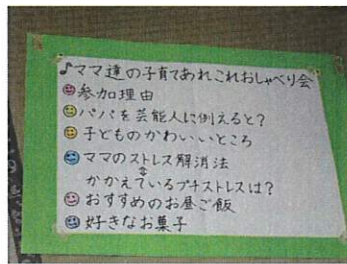 ♪ママ達の子育てあれこれおしゃべり会
参加理由
パパを芸能人に例えると?
子どものかわいいところ
ママのストレス解消法
⇕
かかえているプチストレスは?
おすすめのお昼ご飯
好きなお菓子